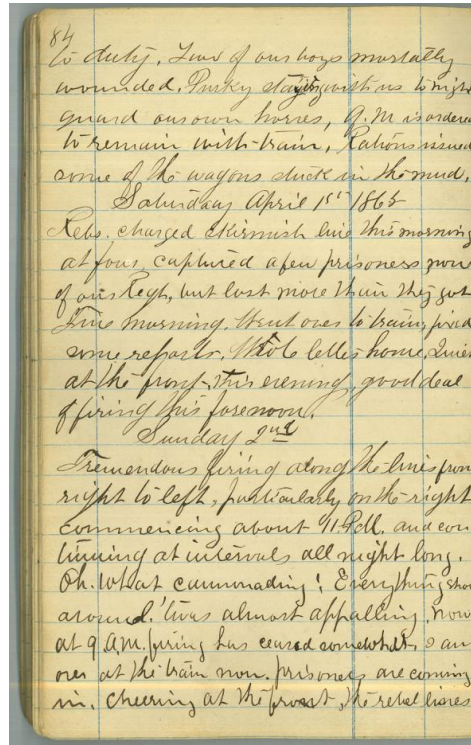 84
to duty. Four of our boys mortally
wounded. Pusky staying with us to night
guard our own horses, Q.M. is ordered
to remain with train, Rations issued
some of the wagons stuck in the mud.
Saturday April 1st 1865
Rebs. charged skirmish line this morning
at four, captured a few prisoners, none
of our Regt, but lost more than they got
Fine morning. Went over to train, fixed
some reports. Wrote letter home, Quiet
at the front this evening, good deal
of firing this forenoon.
Sunday 2nd
Tremendous firing along the lines from
right to left, particularly on the right
commencing about 11 P.M. and con
tinuing at intervals all night long.
Oh. what cannonading! Everything shook
around. 'twas almost appalling, now
at 9 A.M. firing has ceased somewhat, I am
over at the train now. prisoners are coming
in. Cheering at the front, the rebel lines